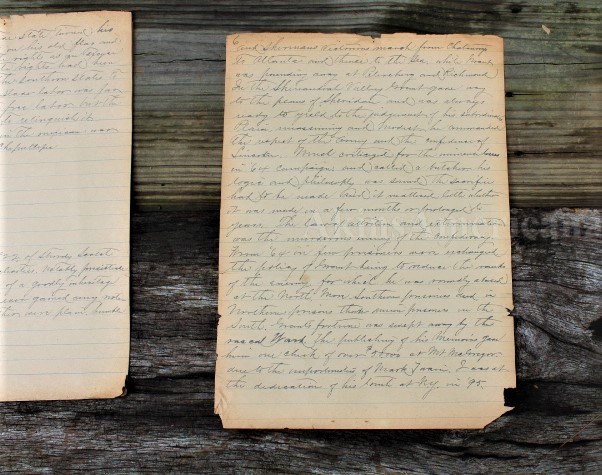 State Tound, his
on his old flag and
rights as an
rights had been
the Southern States. To
slave labor was far
free labor but the
to relinquish it.
in the mexican war
Chepultepec
of Rhode
qualities. Notably persistive
of a goodly heritage
never gained any note
then were plain humble
6
and Shermans victorious march from Chatanooga
To Atlanta and thence to the Sea while Grant
was pounding away at Petersburg and Richmond
In the Shenandoah Valley Grant gave way
to the plans of Sheridan and was always
ready to yield to the judgment of his subordinates
Plain unassuming and modest he commanded
the respect of the Army and the confidence of
Lincoln. Much criticized for the immense losses
in 64 campaign and called a butcher his
logic and philosophy was sound, the sacrifice
had to be made and it mattered little whether
it was made in a few months or prolonged to
years. The
was the murderous enemy of the confederacy
From 64 on few prisoners were exchanged
the policy of Grant being to reduce the ranks
of the enemy for which he was roundly abused
at the North. More Southern prisoners died in
Northern prisons than union prisoners in the
South. Grants fortune was swept away by the
rascal Ward. The publishing of his Memoirs gave
him one check of over at Mt McGregor
due to the importunities of Mark Twain. I was at
the dedication of his tomb at N.Y. in 95